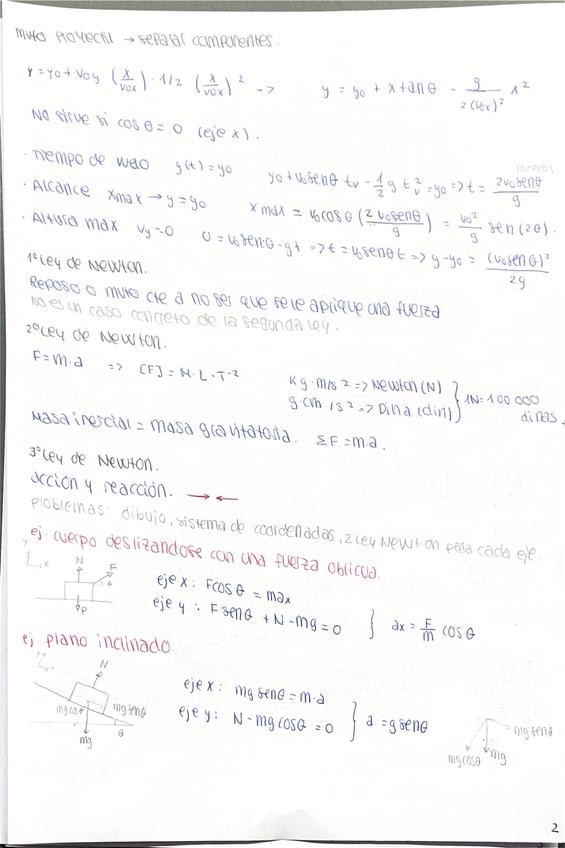 mvto proyectil → separar componentes.
y = y0 + v0y (x/v0x) · 1/2 (x/v0x)² -> y = y0 + x tan θ - g/2(v0x)² x²
No sirve si cos θ = 0 (eje x).
· Tiempo de vuelo y(t) = y0 y0 + v0 sen θ tv - 1/2 g tv² = y0 => t = 2v0 sen θ/g
· Alcance xmax → y = y0 x max = v0 cos θ (2 v0 sen θ/g) = v0²/g sen (2θ).
· Altura max vy = 0 0 = v0 sen θ - gt => t = v0 sen θ t => y - y0 = (v0 sen θ)²/2g
1º Ley de Newton.
Reposo o mvto cte a no ser que se le aplique una fuerza
no es un caso concreto de la segunda ley.
2º Ley de Newton.
F = m·a => [F] = M·L·T-2
Kg·m/s² => Newton (N)
g·cm/s² => Dina (din) } 1N = 100 000 dinas.
Masa inercial = masa gravitatoria. ΣF = m·a.
3º Ley de Newton.
acción y reacción. → ←
problemas: dibujo, sistema de coordenadas, 2 Ley Newton para cada eje.
ej. cuerpo deslizandose con una fuerza oblicua.
y x N F θ P
eje x: F cos θ = max
eje y: F sen θ + N - mg = 0 } ax = F/m cos θ
ej plano inclinado
N mg cos θ mg sen θ mg θ
eje x: mg sen θ = m·a
eje y: N - mg cos θ = 0 } a = g sen θ
mg sen θ
mg cos θ mg
2